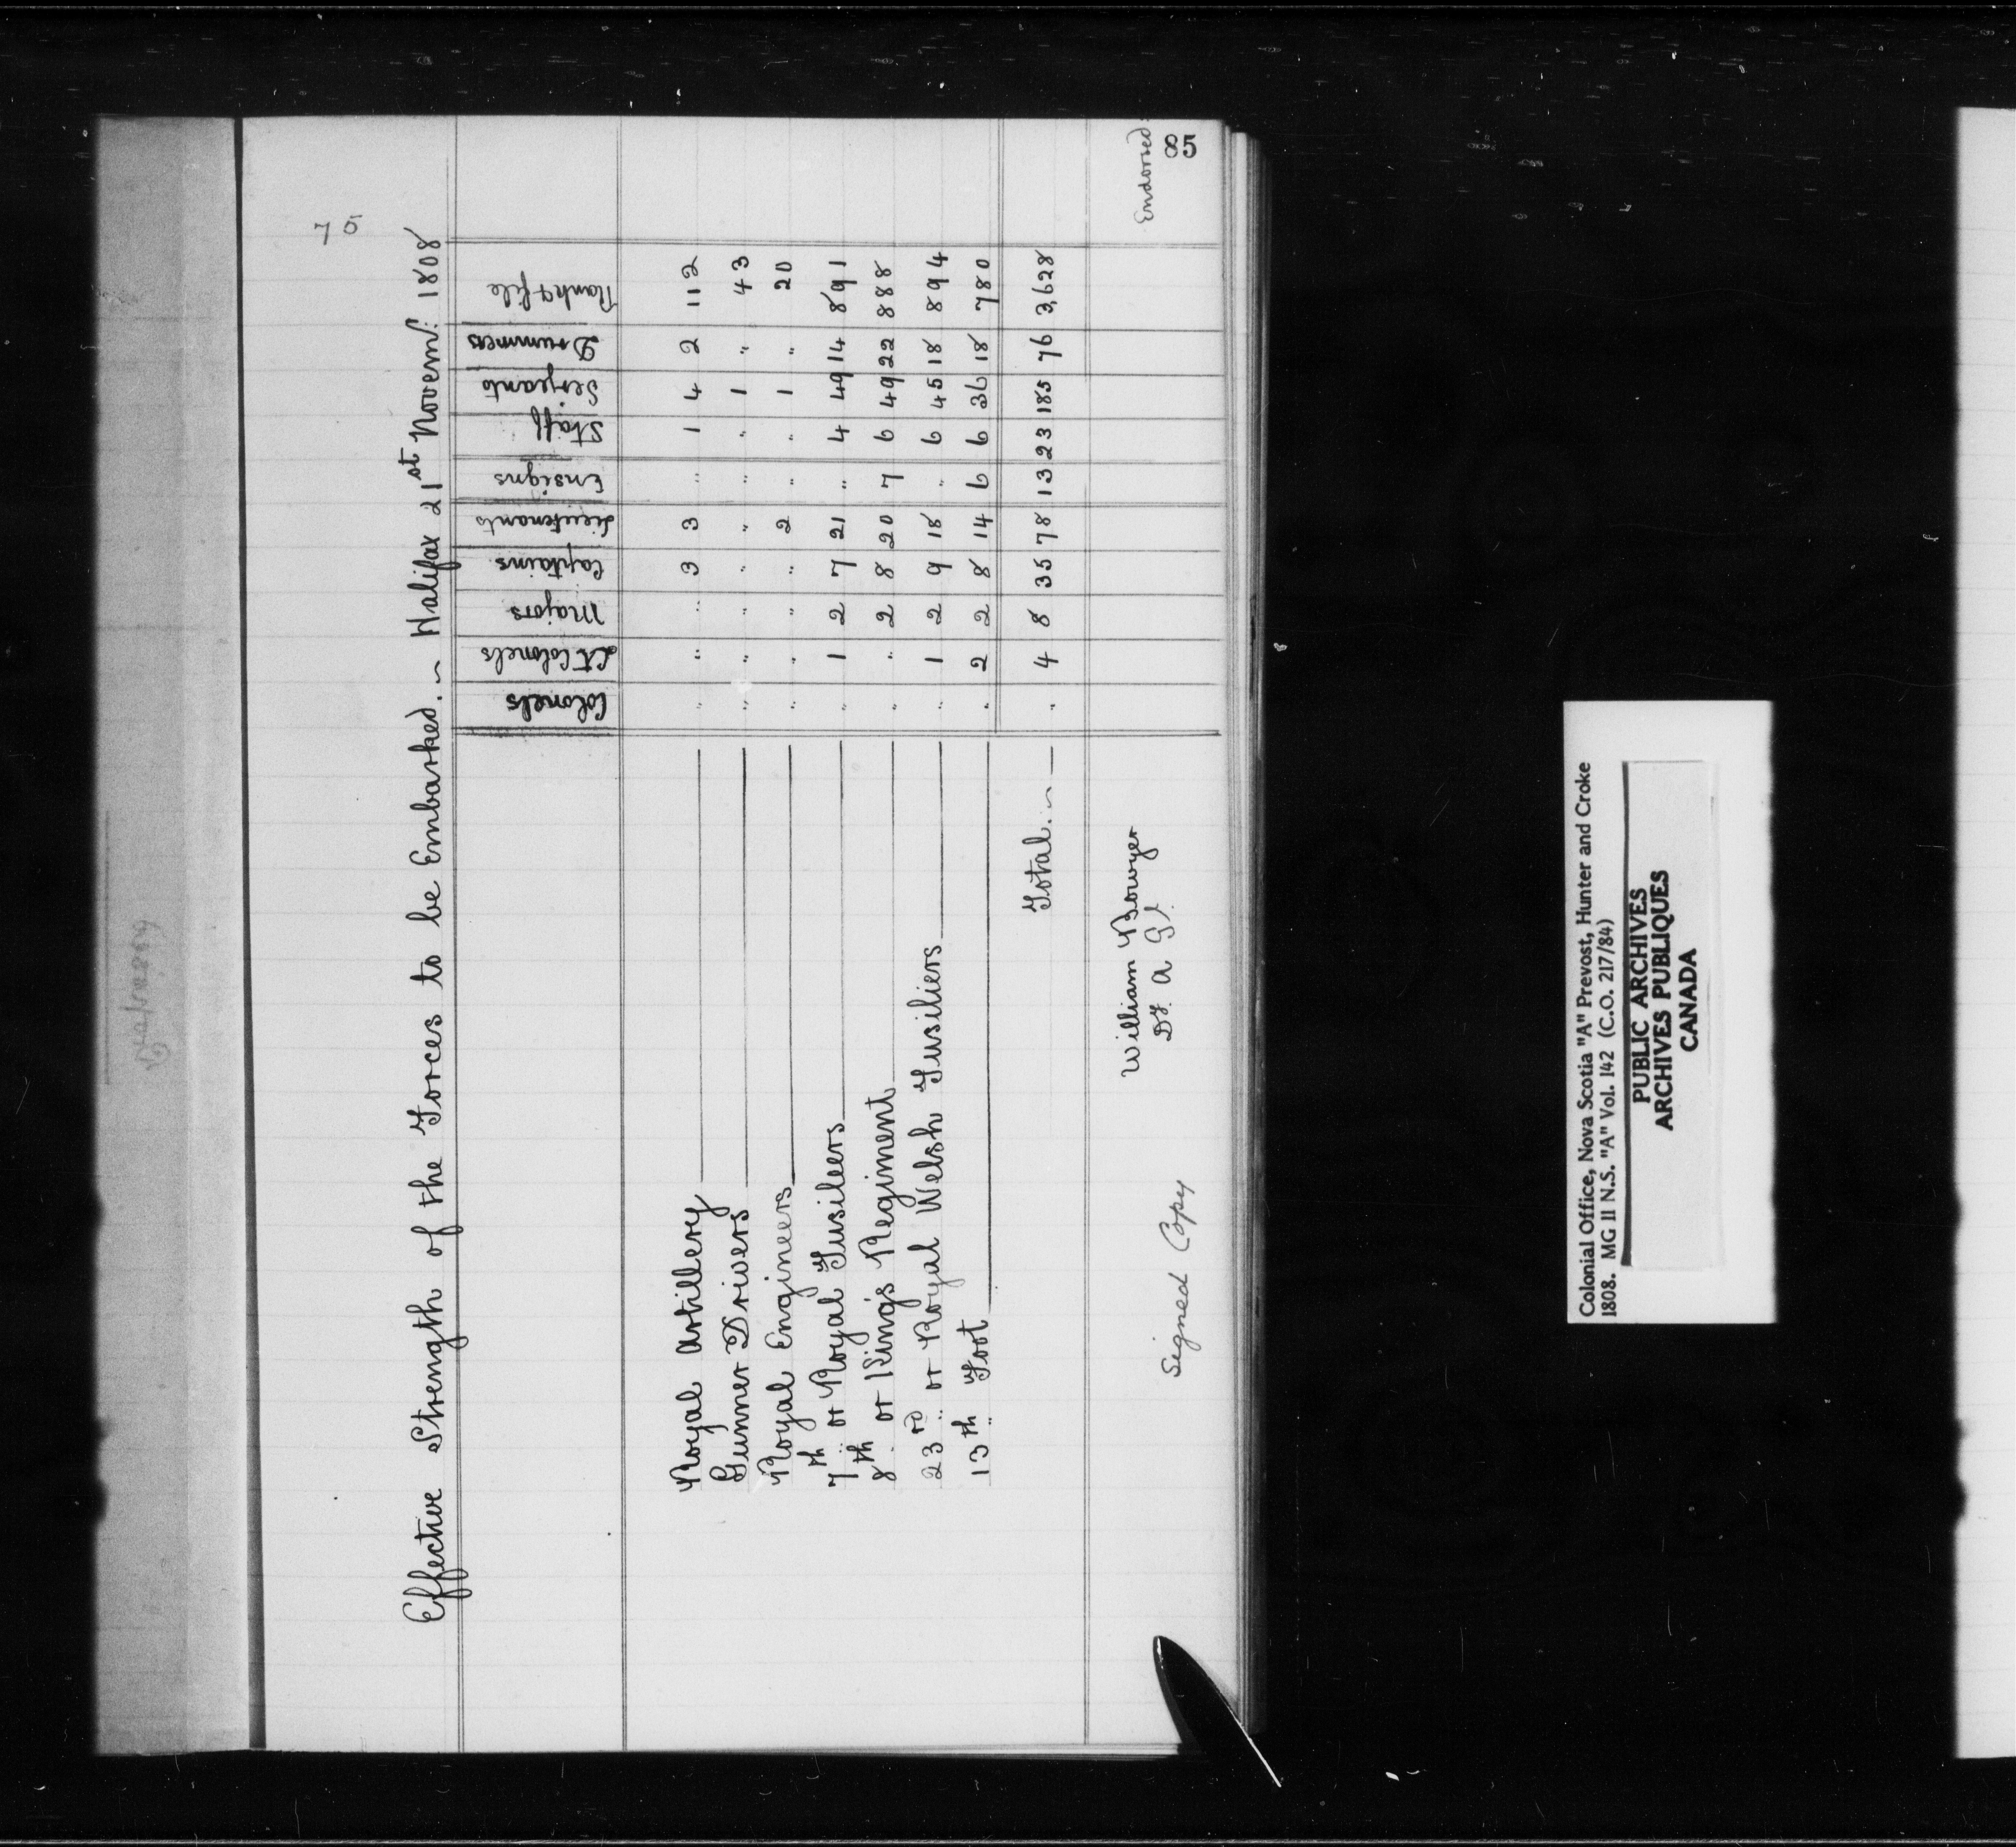 75
Effective Strength of the Forces to be Embarked. ~ Halifax 21st Novem: 1808
Colonels Lt Colonels Majors Captains Lieutenants Ensigns Staff Serjeants Drummers Rank & file
Royal Artillery " " " 3 3 " 1 4 2 112
Gunner Drivers " " " " " " " 1 " 43
Royal Engineers " " " " 2 " " 1 " 20
7th or Royal Fusileers " 1 2 7 21 " 4 49 14 891
8th or King's Regiment " " 2 8 20 7 6 49 22 888
23rd or Royal Welsh Fusiliers " 1 2 9 18 " 6 45 18 894
13th Foot " 2 2 8 14 6 6 36 18 780
Total. ~ " 4 8 35 78 13 23 185 76 3,628
William Bowyer
Dy. A Gl.
Signed Copy
Endorsed:
85
Colonial Office, Nova Scotia "A" Prevost, Hunter and Croke
1808. MG 11 N.S. "A" Vol. 142 (C.O. 217/84)
PUBLIC ARCHIVES
ARCHIVES PUBLIQUES
CANADA